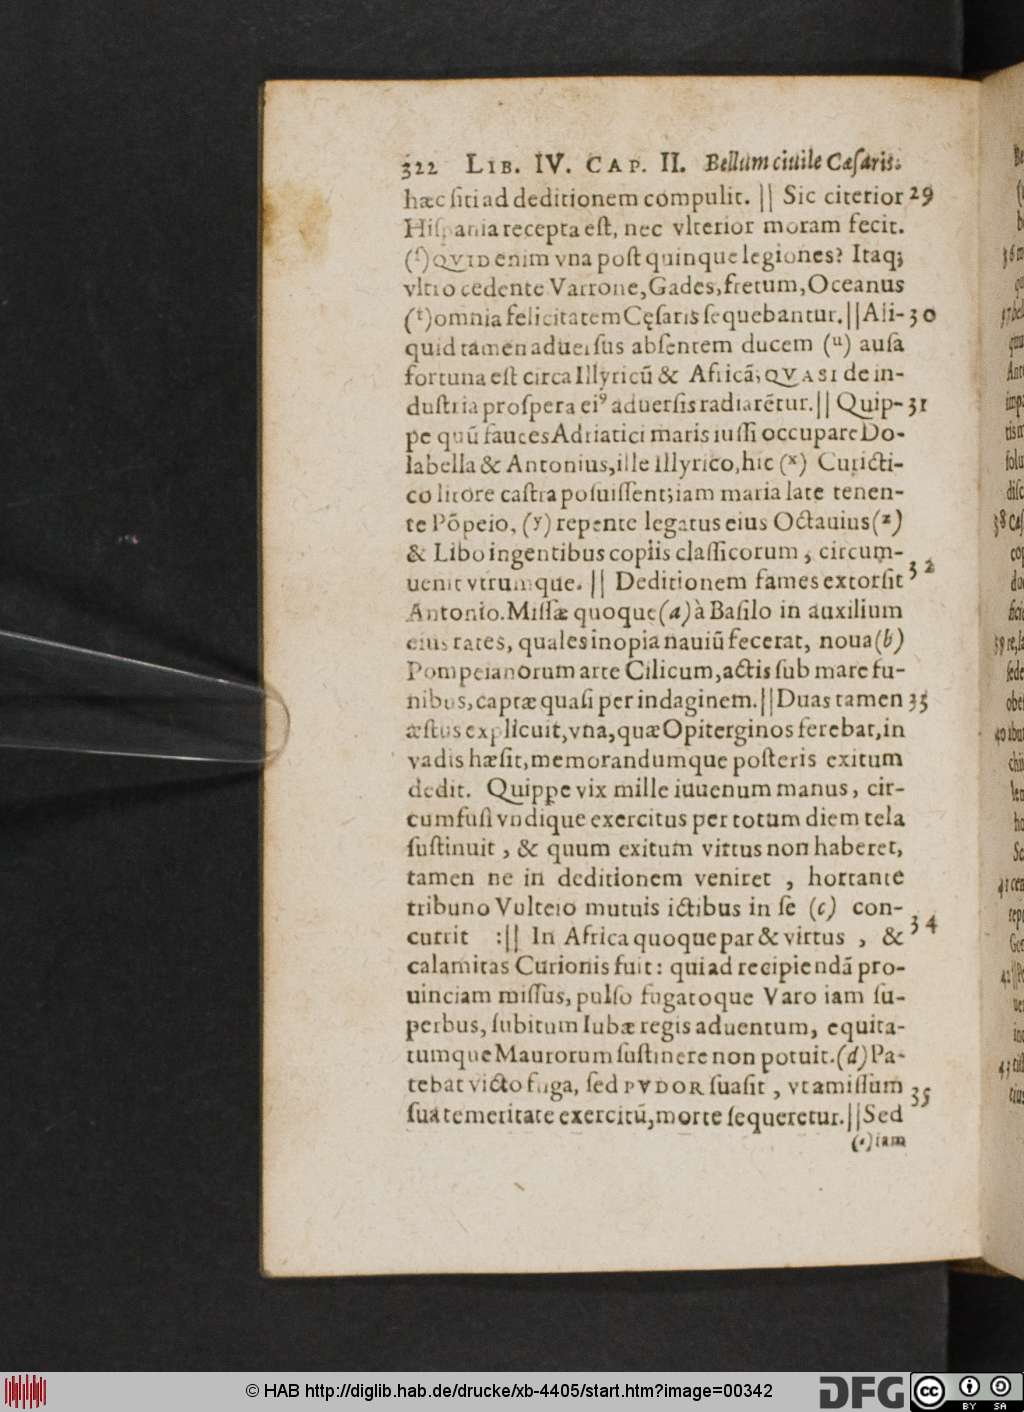 322 LIB. IV. CAP. II. Bellum ciuile Cæsaris.
hæc siti ad deditionem compulit. || Sic citerior 29
Hispania recepta est, nec vlterior moram fecit.
(s) QVID enim vna post quinque legiones? Itaq;
vltro cedente Varrone, Gades, fretum, Oceanus
(t) omnia felicitatem Cęsaris sequebantur. || Ali- 30
quid tamen aduersus absentem ducem (u) ausa
fortuna est circa Illyricũ & Africã, QVASI de in-
dustria prospera eiꝰ aduersis radiarẽtur. || Quip- 31
pe quũ fauces Adriatici maris iussi occupare Do-
labella & Antonius, ille Illyrico, hic (x) Curicti-
co litore castra posuissent; iam maria late tenen-
te Põpeio, (y) repente legatus eius Octauius (z)
& Libo ingentibus copiis classicorum, circum-
uenit vtrumque. || Deditionem fames extorsit 32
Antonio. Missæ quoque (a) à Basilo in auxilium
eius rates, quales inopia nauiũ fecerat, noua (b)
Pompeianorum arte Cilicum, actis sub mare fu-
nibus, captæ quasi per indaginem. || Duas tamen 33
æstus explicuit, vna, quæ Opiterginos ferebat, in
vadis hæsit, memorandumque posteris exitum
dedit. Quippe vix mille iuuenum manus, cir-
cumfusi vndique exercitus per totum diem tela
sustinuit, & quum exitum virtus non haberet,
tamen ne in deditionem veniret, hortante
tribuno Vulteio mutuis ictibus in se (c) con-
currit :|| In Africa quoque par & virtus, & 34
calamitas Curionis fuit: qui ad recipiendã pro-
uinciam missus, pulso fugatoque Varo iam su-
perbus, subitum Iubæ regis aduentum, equita-
tumque Maurorum sustinere non potuit. (d) Pa-
tebat victo fuga, sed PVDOR suasit, vt amissum
sua temeritate exercitũ, morte sequeretur. || Sed 35
(e) iam
© HAB http://diglib.hab.de/drucke/xb-4405/start.htm?image=00342
DFG
cc BY SA